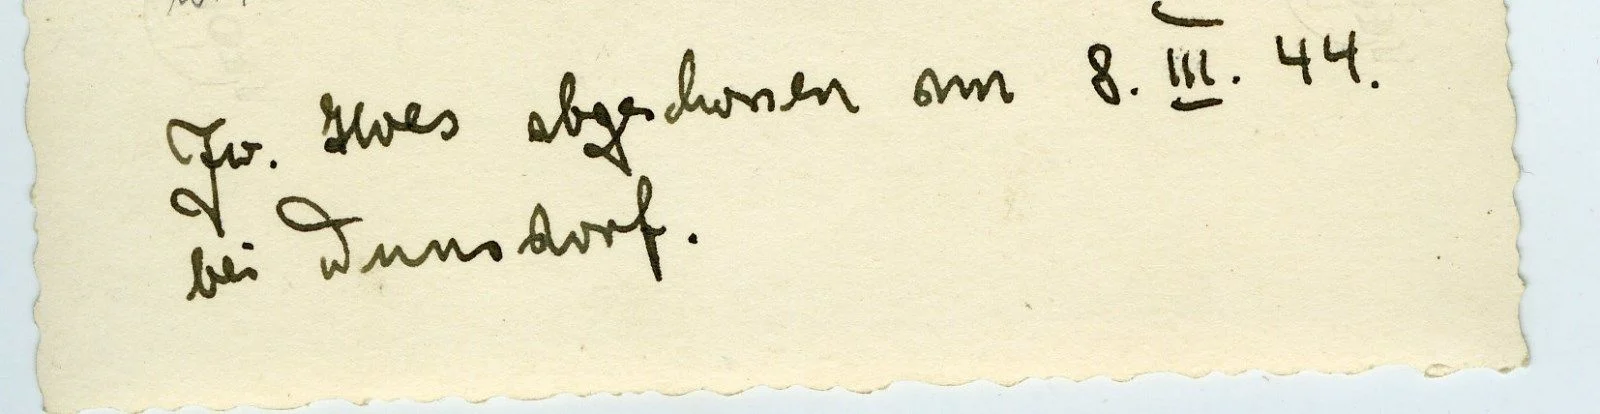 abgeschossen am 8. III. 44.
bei Dunsdorf.